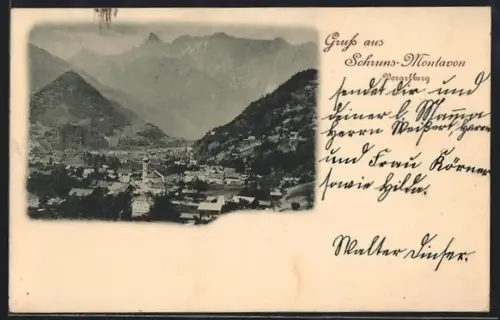 Gruß aus
Schruns-Montavon
Vorarlberg
sendet dir und
deiner l. Mama
Herrn Weißert, Herrn
und Frau Körner
sowie Hilda.
Walter